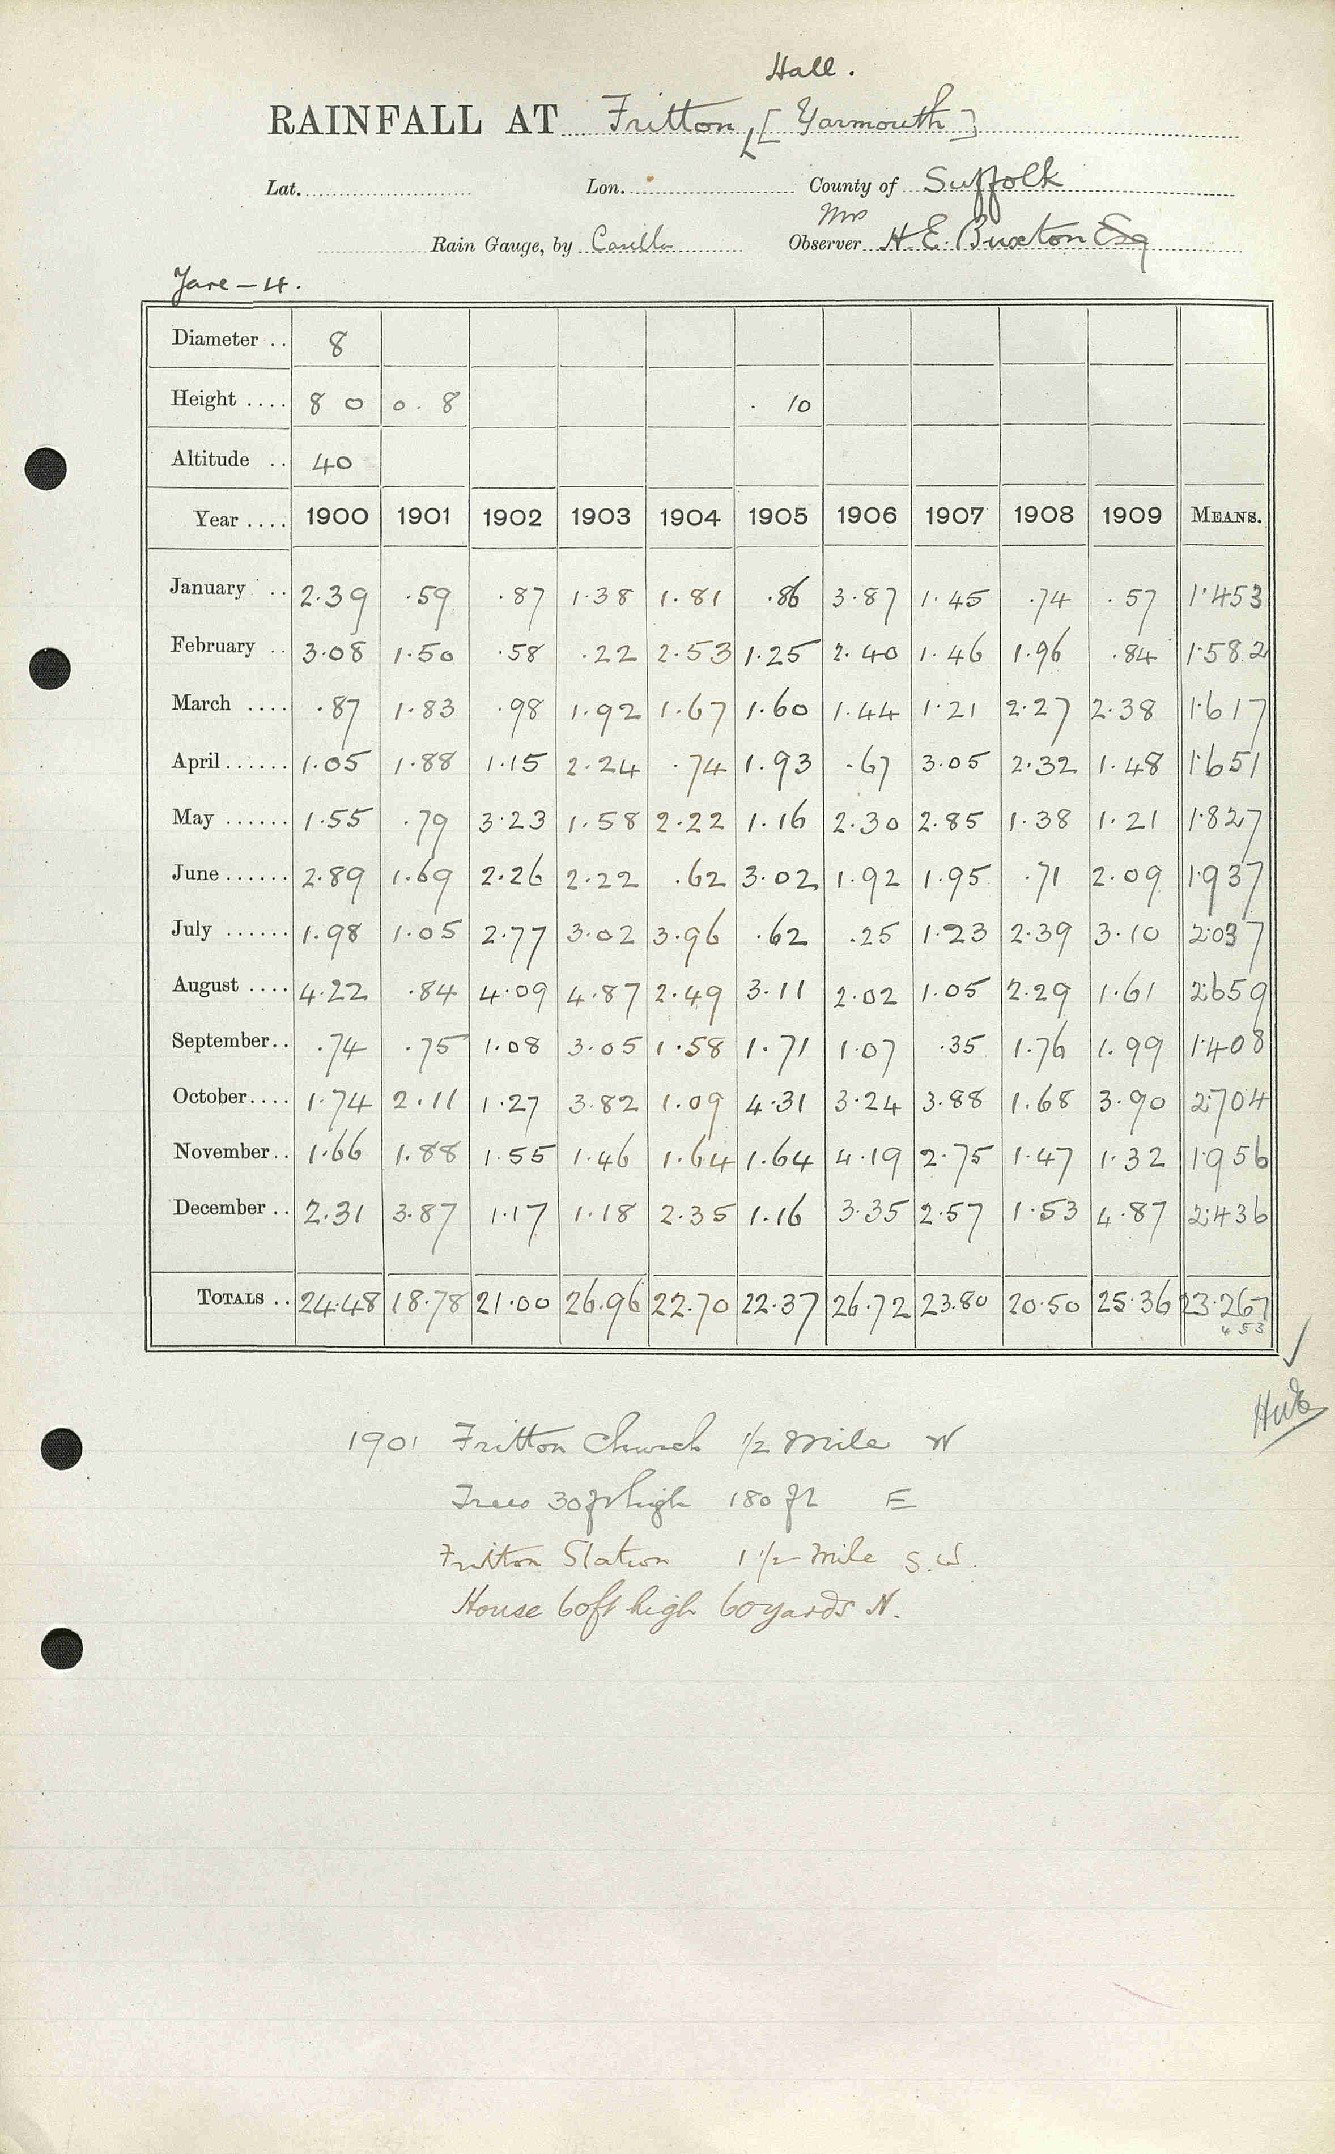 Hall.
RAINFALL AT Fritton, [Yarmouth]
Lat. Lon. County of Suffolk
Mrs
Rain Gauge, by Casella Observer H. E. Buxton Esq
Yare - 4.
Diameter .. 8
Height .... 8 0 0.8 . 10
Altitude .. 40
Year .... 1900 1901 1902 1903 1904 1905 1906 1907 1908 1909 MEANS.
January .. 2.39 .59 .87 1.38 1.81 .86 3.87 1.45 .74 .57 1.453
February .. 3.08 1.50 .58 .22 2.53 1.25 2.40 1.46 1.96 .84 1.582
March .... .87 1.83 .98 1.92 1.67 1.60 1.44 1.21 2.27 2.38 1.617
April ...... 1.05 1.88 1.15 2.24 .74 1.93 .67 3.05 2.32 1.48 1.651
May ...... 1.55 .79 3.23 1.58 2.22 1.16 2.30 2.85 1.38 1.21 1.827
June ...... 2.89 1.69 2.26 2.22 .62 3.02 1.92 1.95 .71 2.09 1.937
July ...... 1.98 1.05 2.77 3.02 3.96 .62 .25 1.23 2.39 3.10 2.037
August .... 4.22 .84 4.09 4.87 2.49 3.11 2.02 1.05 2.29 1.61 2.659
September .. .74 .75 1.08 3.05 1.58 1.71 1.07 .35 1.76 1.99 1.408
October .... 1.74 2.11 1.27 3.82 1.09 4.31 3.24 3.88 1.68 3.90 2.704
November .. 1.66 1.88 1.55 1.46 1.64 1.64 4.19 2.75 1.47 1.32 1.956
December .. 2.31 3.87 1.17 1.18 2.35 1.16 3.35 2.57 1.53 4.87 2.436
TOTALS .. 24.48 18.78 21.00 26.96 22.70 22.37 26.72 23.80 20.50 25.36 23.267
453
1901 Fritton Church 1/2 Mile W
Trees 30ft high 180 ft E
Fritton Station 1 1/2 Mile S.W.
House 60ft high 60 yards N.